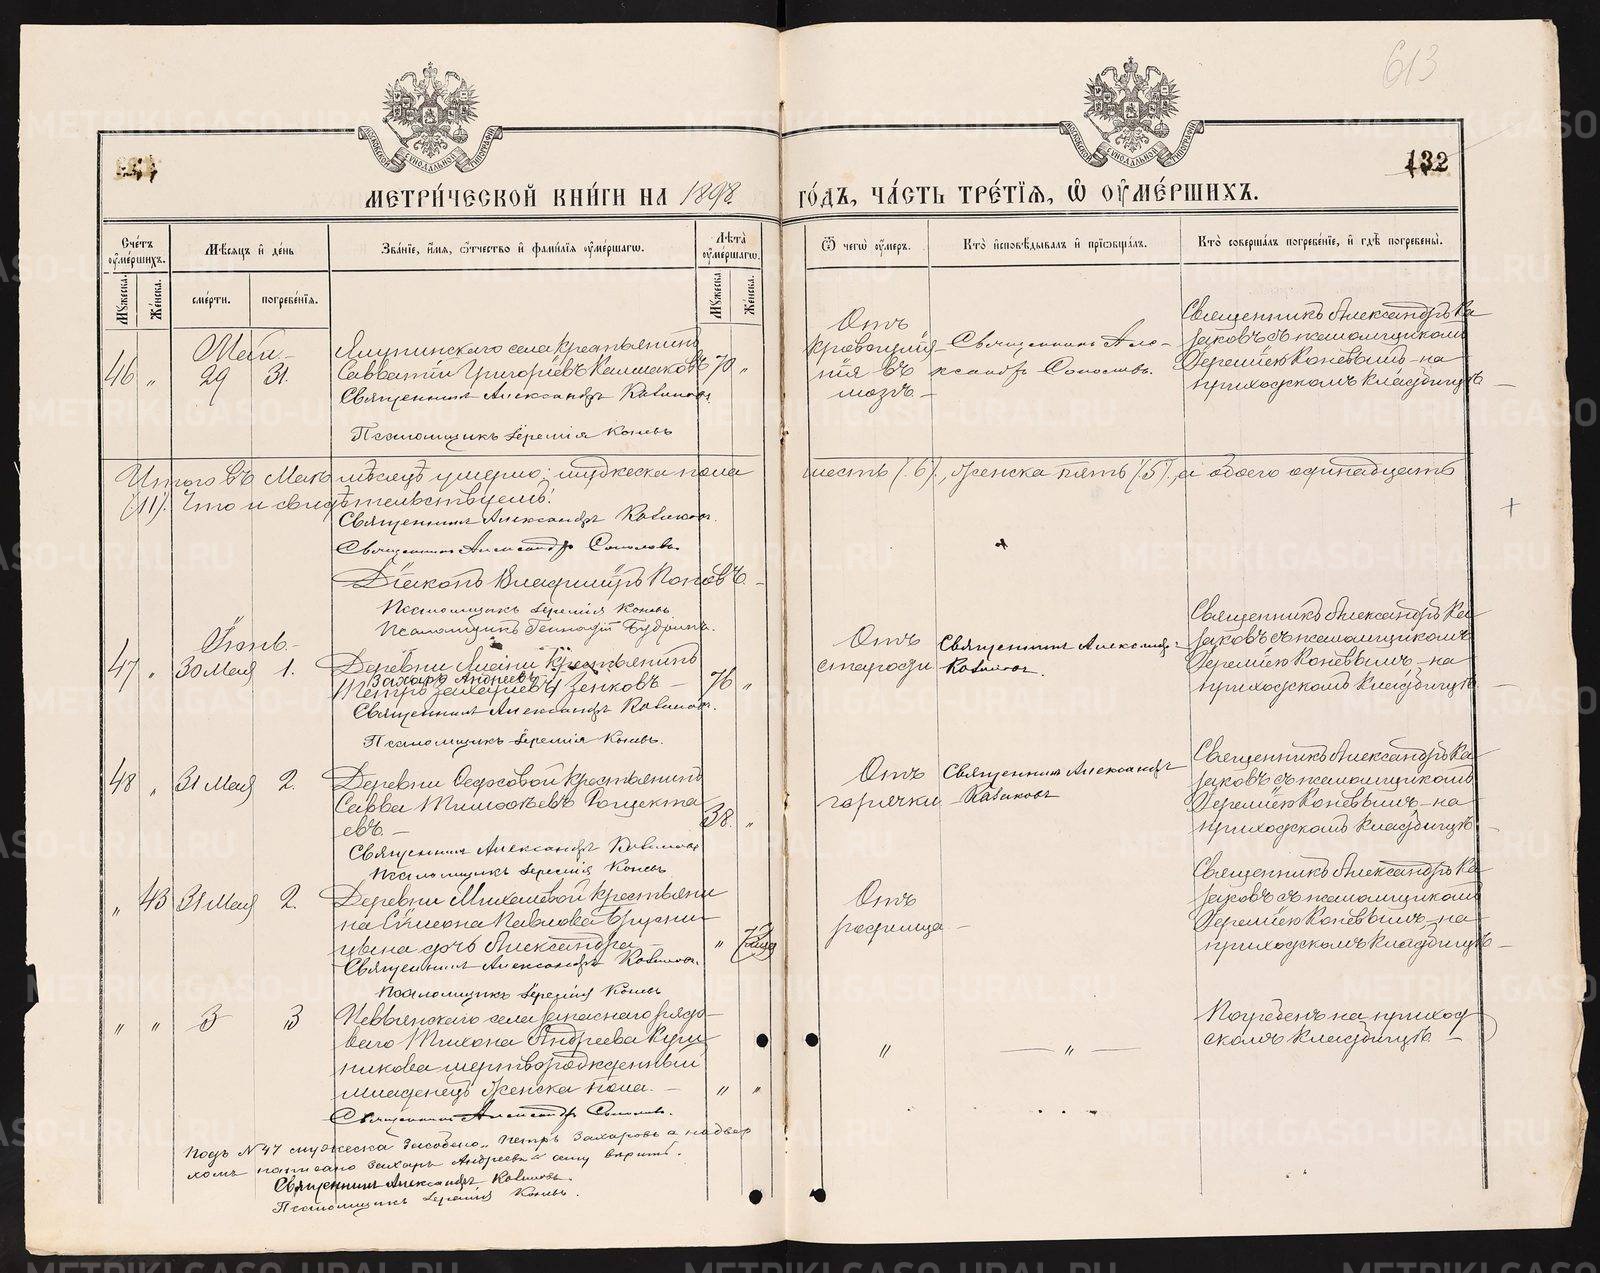 613
132
МЕТРИ́ЧЕСКОЙ КНИ́ГИ НА 1898 ГО́ДЪ, ЧА́СТЬ ТРЕ́ТЇѦ, Ѡ҆ ОУ҆МЕ́РШИХЪ.
Сче́тъ оу҆ме́ршихъ.
Мѣ́сяцъ и҆ де́нь
Зва́нїе, и҆́мѧ, ѻ҆́тчество и҆ фами́лїѧ оу҆ме́ршагѡ.
Лѣ́та оу҆ме́ршагѡ.
Ѿ чегѡ̀ оу҆́меръ.
Кто̀ и҆сповѣ́дывалъ и҆ прїѡбща́лъ.
Кто̀ соверша́лъ погребе́нїе, и҆ гдѣ̀ погребены̀.
Мꙋ́жеска.
Же́нска.
сме́рти.
погребе́нїѧ.
Мꙋ́жеска
Же́нска.
Маія
46 „ 29 31.
крестьянинъ
Савватій Григорьевъ 70 „
Священникъ Александръ Казаковъ.
Псаломщикъ Іеремія Коневъ
Отъ
кровоизлія-
нія въ
мозгъ.-
Священникъ Але-
ксандръ Соколовъ.
Священникъ Александръ Ка-
заковъ съ псаломщикомъ
Іереміею Коневымъ - на
приходскомъ кладбищѣ
Итого въ Маѣ мѣсяцѣ умерло: мужеска пола шесть /6/, женска пять /5/, а обоего одинадцать
/11/. Что и свидѣтельствуемъ:
Священникъ Александръ Казаковъ.
Священникъ Александръ Соколовъ
Діаконъ Владиміръ Поповъ. -
Псаломщикъ Іеремія Коневъ.
Псаломщикъ Геннадій
Іюнь.-
47 „ 30 Мая 1.
крестьянинъ
Захаръ Андреевъ
Петръ Захаріевъ Зенковъ - 76 „
Священникъ Александръ Казаковъ.
Псаломщикъ Іеремія Коневъ.
Отъ
старости
Священникъ Александръ
Казаковъ.
Священникъ Александръ Ка-
заковъ съ псаломщикомъ
Іереміею Коневымъ - на
приходскомъ кладбищѣ -
48 „ 31 Мая 2.
Деревни Федосовой крестьянинъ
Савва Тимофеевъ
евъ. - 38. „
Священникъ Александръ Казаковъ
Псаломщикъ Іеремія Коневъ
Отъ
горячки
Священникъ Александръ
Казаковъ
Священникъ Александръ Ка-
заковъ съ псаломщикомъ
Іереміею Коневымъ - на
приходскомъ кладбищѣ -
„ 43 31 Мая 2.
Деревни Михалевой крестьяни-
на Симеона Павлова Брусни-
цына дочь Александра -
Священникъ Александръ Казаковъ.
Псаломщикъ Іеремія Коневъ
Отъ
родимца -
Священникъ Александръ Ка-
заковъ съ псаломщикомъ
Іереміею Коневымъ, - на
приходскомъ кладбищѣ -
„ „ 3 3
Невьянскаго села запаснаго рядо-
ваго Тихона Андреева
мертворожденный
младенецъ женска пола. - „ „
Священникъ Александръ Соколовъ.
„ — „ —
Погребенъ на приход-
скомъ кладбищѣ. -
Подъ № 47 мужеска Петръ Захаровъ а надвер-
хомъ написано Захаръ Андреевъ
Священникъ Александръ Казаковъ.
Псаломщикъ Іеремія Коневъ.
METRIKI.GASO-URAL.RU